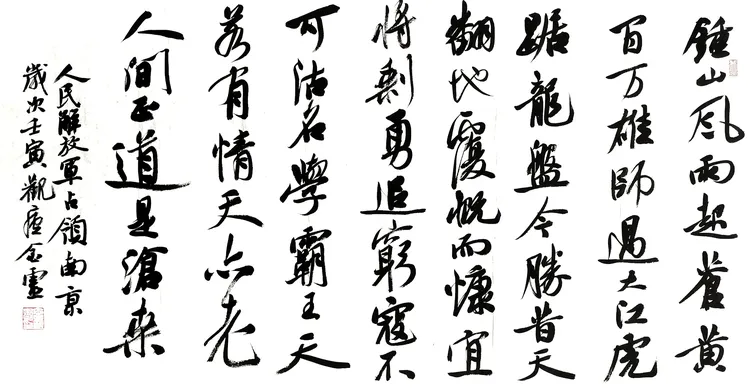 鍾山風雨起蒼黄
百万雄師過大江虎
踞龍盤今勝昔天
翻地覆慨而慷宜
将剩勇追窮寇不
可沽名學霸王天
若有情天亦老
人间正道是滄桑
人民解放軍占領南京
歲次壬寅觀